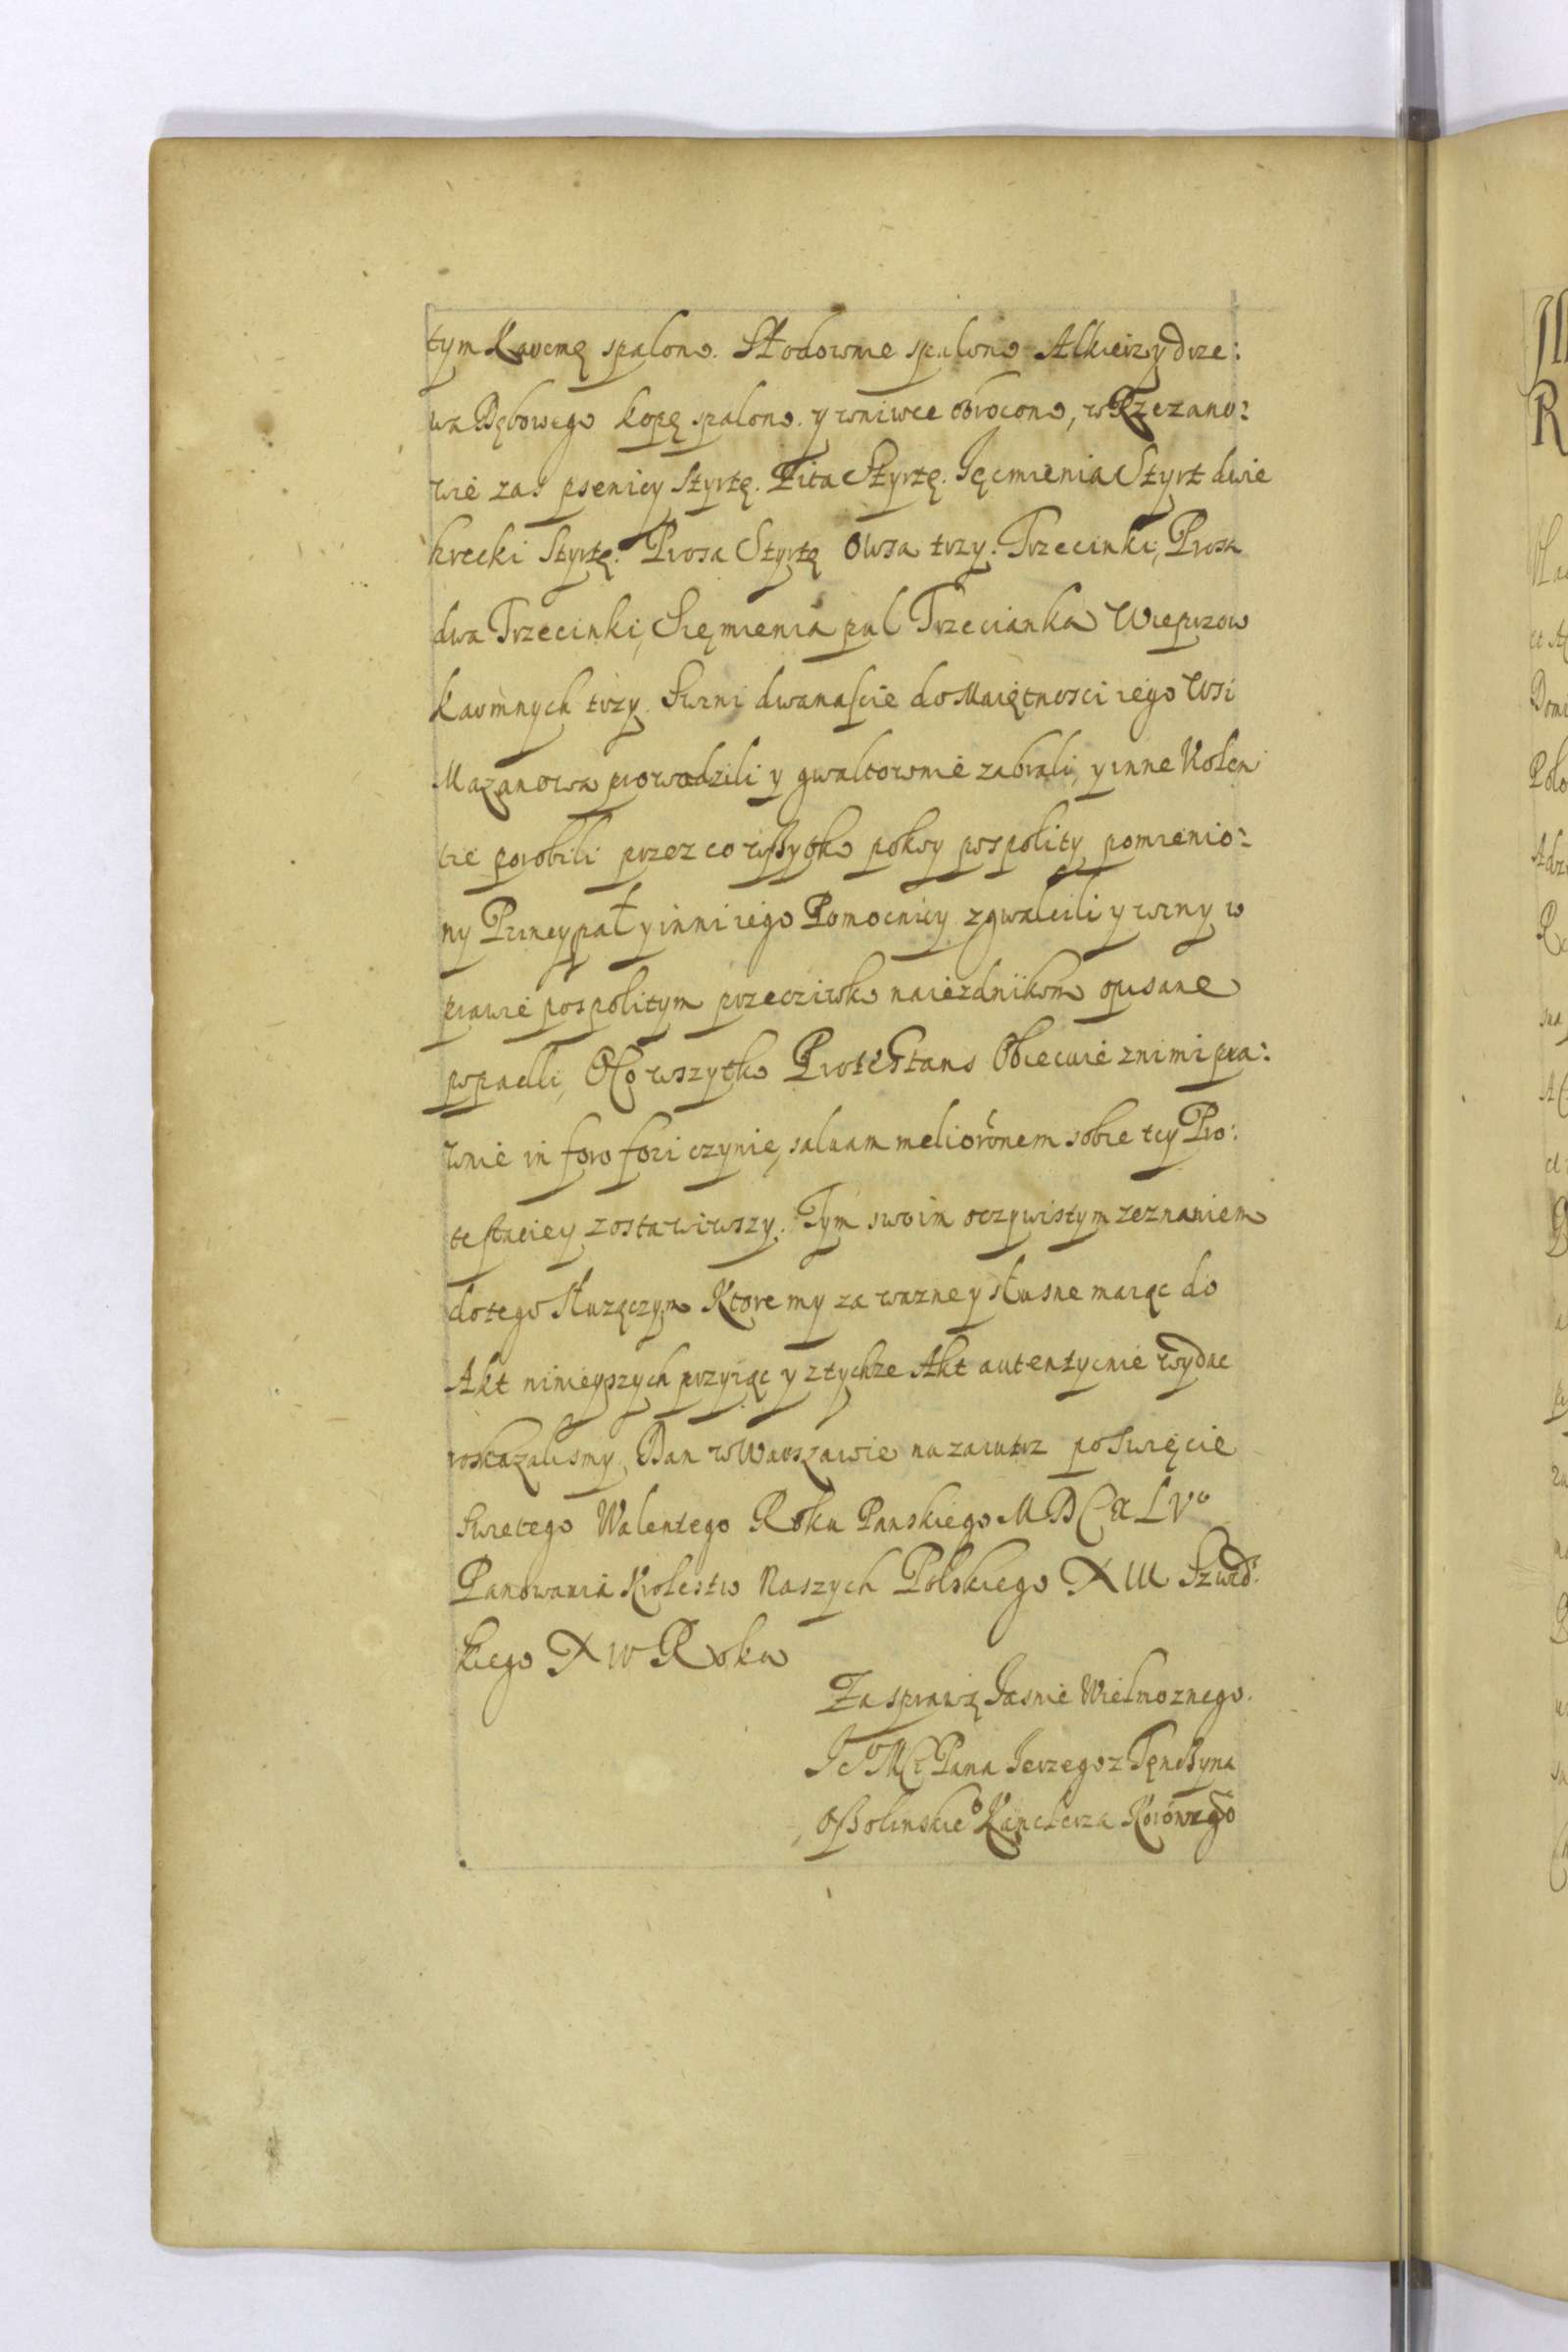 tym Karcmę spalono. Słodownie spalono Alkierz y drze:
wa Dębowego kopę spalono. y wniwec obrocono, w Rzezano:
wie zas psenicy Styrtę. Zita Sztyrtę. Jęcmienia Styrt dwie
hrecki Styrtę. Prosa Styrtę Owsa trzy. Trzecinki, Prosa
dwa Trzecinki, Sięmienia pul Trzecianka Wieprzow
karmnych trzy. Swini dwanascie do Maiętnosci iego Wsi
Mazanowa prowadzili y gwaltownie zabrali, y inne Kolen
tie porobili przez co wszytko pokoy pospolity pomienio:
ny Princypał y inni iego Pomocnicy zgwalcili y winy w
prawie pospolitym przeciwko naiezdnikom opisane
popadli, O Co wszytko Protestans Obiecuie z nimi pra:
wnie in foro fori czynic, saluam meliorõnem sobie tey Pro:
testaciey zostawiwszy. Tym swoim oczywistym zeznaniem
do tego słuzączym Ktore my za wazne y słusne maiąc do
Akt ninieyszych przyiąc y z tychze Akt autentycnie wydac
roskazalismy. Dan w Warszawie nazaiutrz po Swięcie
Swietego Walentego Roku Panskiego MDCXLVo
Panowania Krolestw Naszych Polskiego XIII Szwed:
kiego XIV Roku
Za sprawą Jasnie Wielmoznego.
Jeo Mci Pana Jerzego z Tęnczyna
Ossolinskieo Kanclerza Koronnego